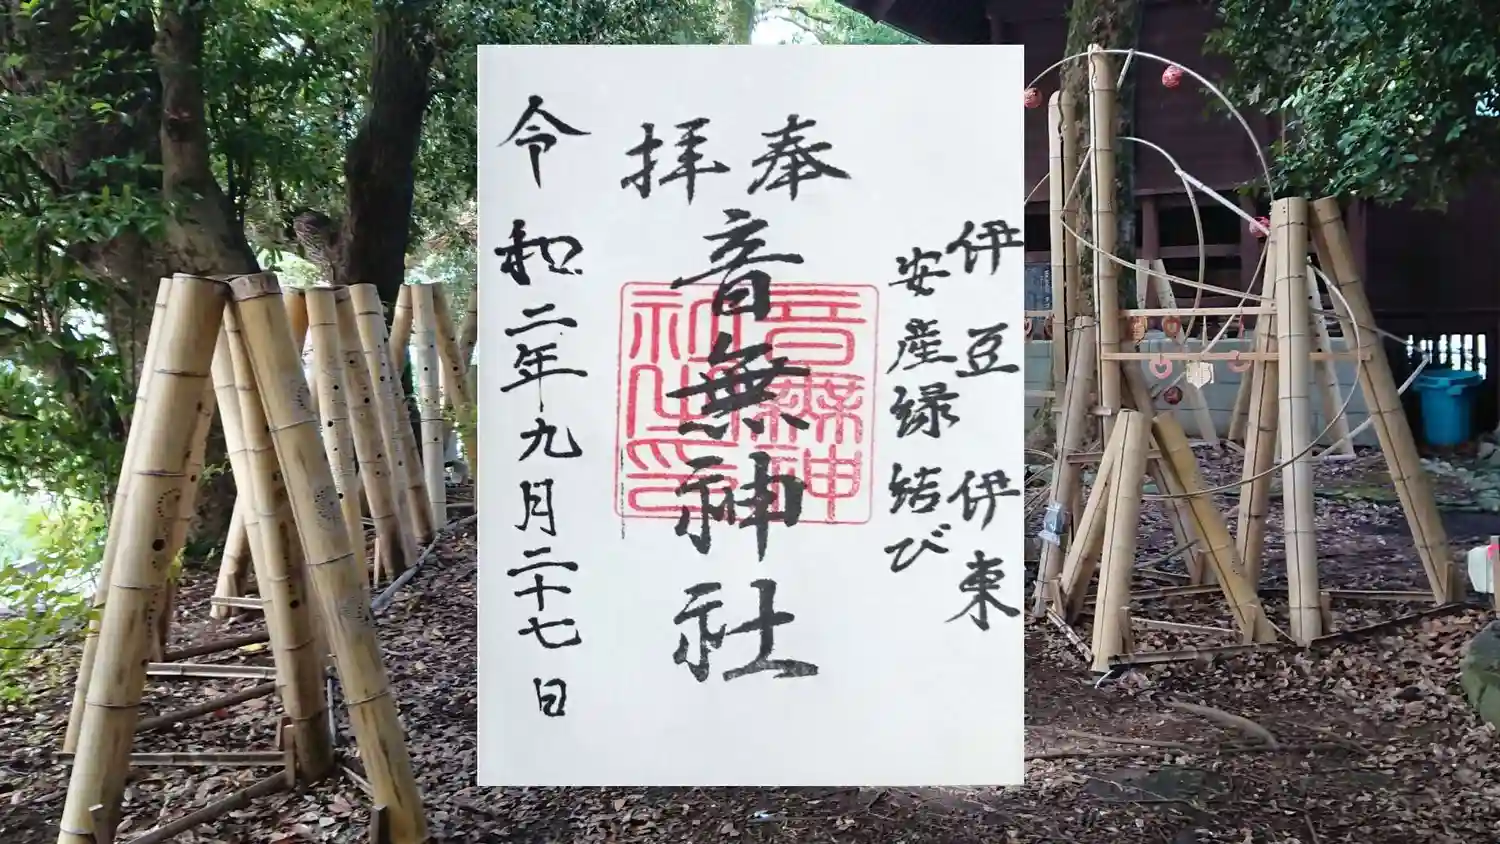 伊豆 伊東
安産縁結び
奉拝
音無神社
音無神社之印
令和二年九月二十七日